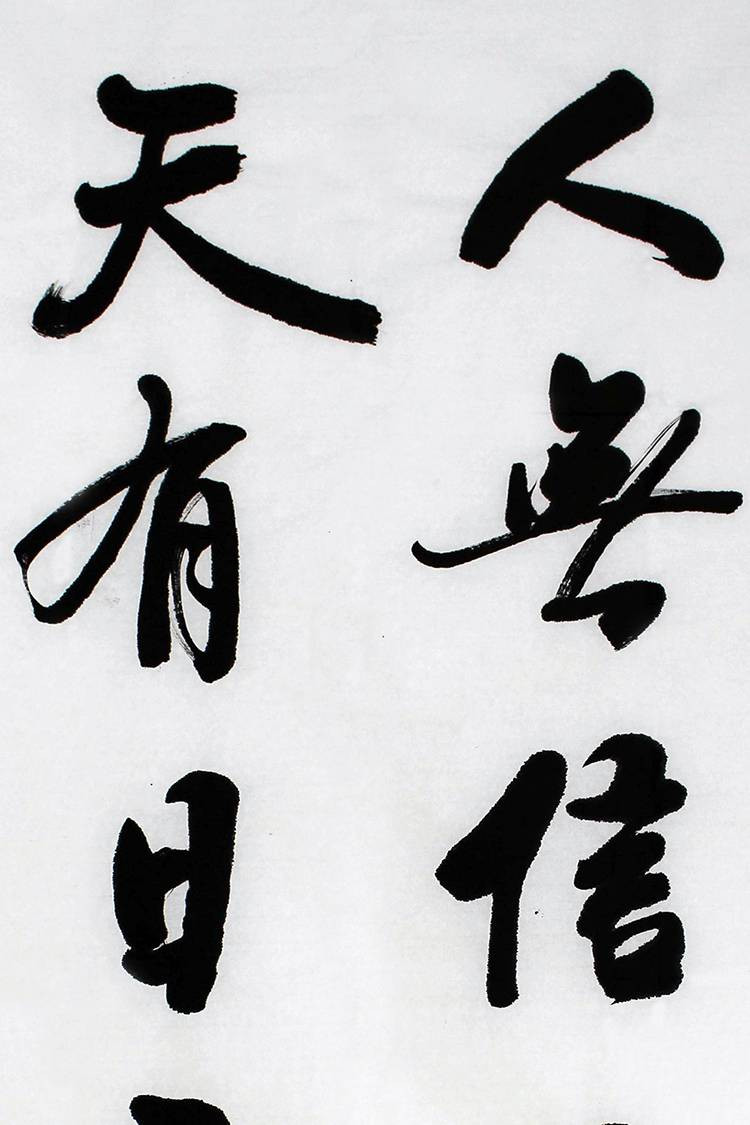 人無信
天有日